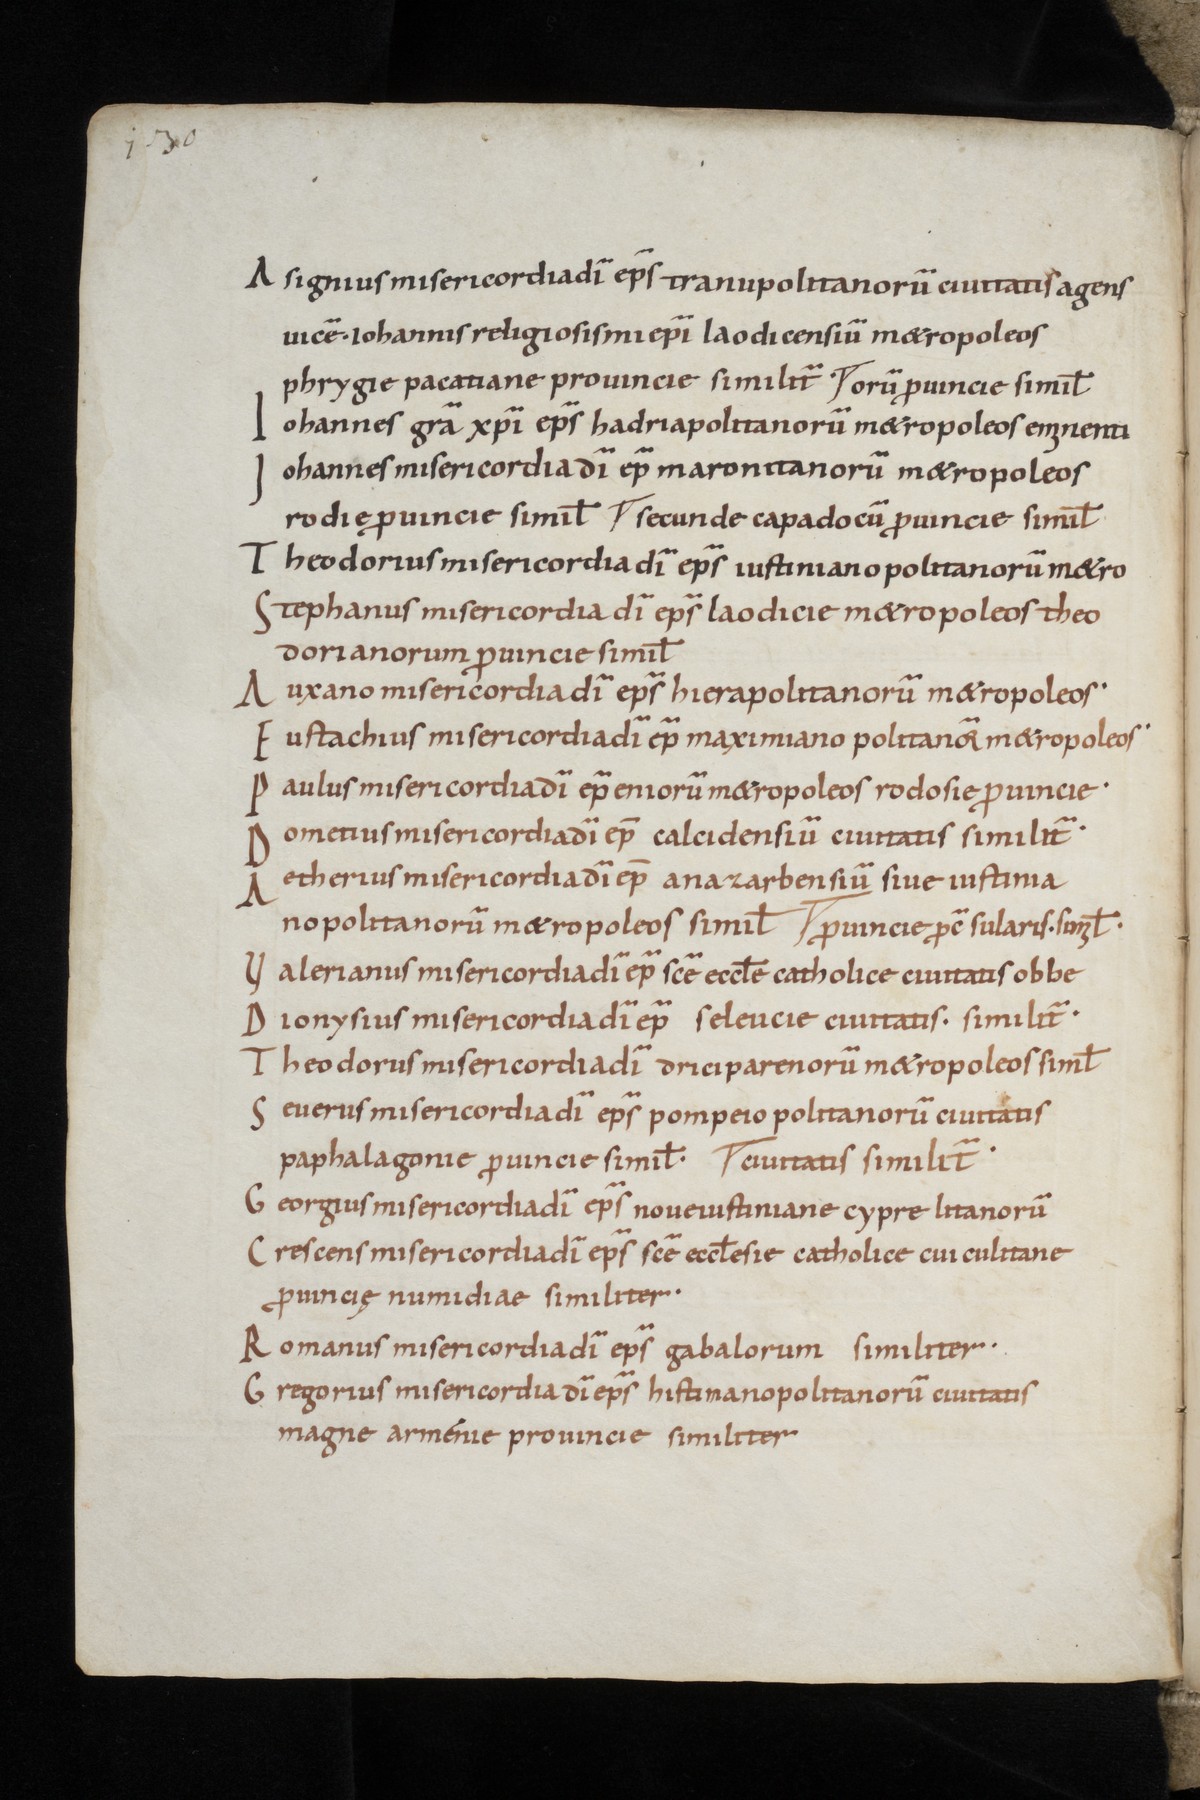 130
Asignius misericordia dī ep̄s tranupolitanorū ciuitatis agens
uicē· iohannis religiosismi ep̄i laodicensiū m&ropoleos
phrygie pacatiane prouincie similit̄· orū ꝓuincie simił
Iohannes grā xp̄i ep̄s hadriapolitanorū m&ropoleos emnenti
Iohannes misericordia dī ep̄ maronitanorū m&ropoleos
rodię ꝓuincie simił secunde capadocū ꝓuincie simił
Theodorius misericordia dī ep̄s iustinianopolitanorū m&ro
Stephanus misericordia dī ep̄s laodicie m&ropoleos theo
dorianorum ꝓuincie simił
Auxano misericordia dī ep̄s hierapolitanorū m&ropoleos·
Eustachius misericordia dī ep̄ maximiano politanoꝝ̄ m&ropoleos·
Paulus misericordia dī ep̄ eniorū m&ropoleos rodosie ꝓuincie·
Dometius misericordia dī ep̄ calcidensiū ciuitatis similit̄·
Aetherius misericordia dī ep̄ anazarbensiū siue iustinia
nopolitanorū m&ropoleos simił ꝓuincie ꝓc̄ sularis· simł·
Valerianus misericordia dī ep̄ scē eccłe catholice ciuitatis obbe
Dionysius misericordia dī ep̄ seleucie ciuitatis· similit̄·
Theodorus misericordia dī driciparenorū m&ropoleos simł
Seuerus misericordia dī ep̄s pompeio politanorū ciuitatis
paphalagonie ꝓuincie simił· ciuitatis similit̄·
Georgius misericordia dī ep̄s noue iustiniane cypre litanorū
Crescens misericordia dī ep̄s scē eccłesie catholice cuiculitane
ꝓuincię numidiae similiter·
Romanus misericordia dī ep̄s gabalorum similiter·
Gregorius misericordia dī ep̄s histinanopolitanorū ciuitatis
magne arménie prouincie similiter